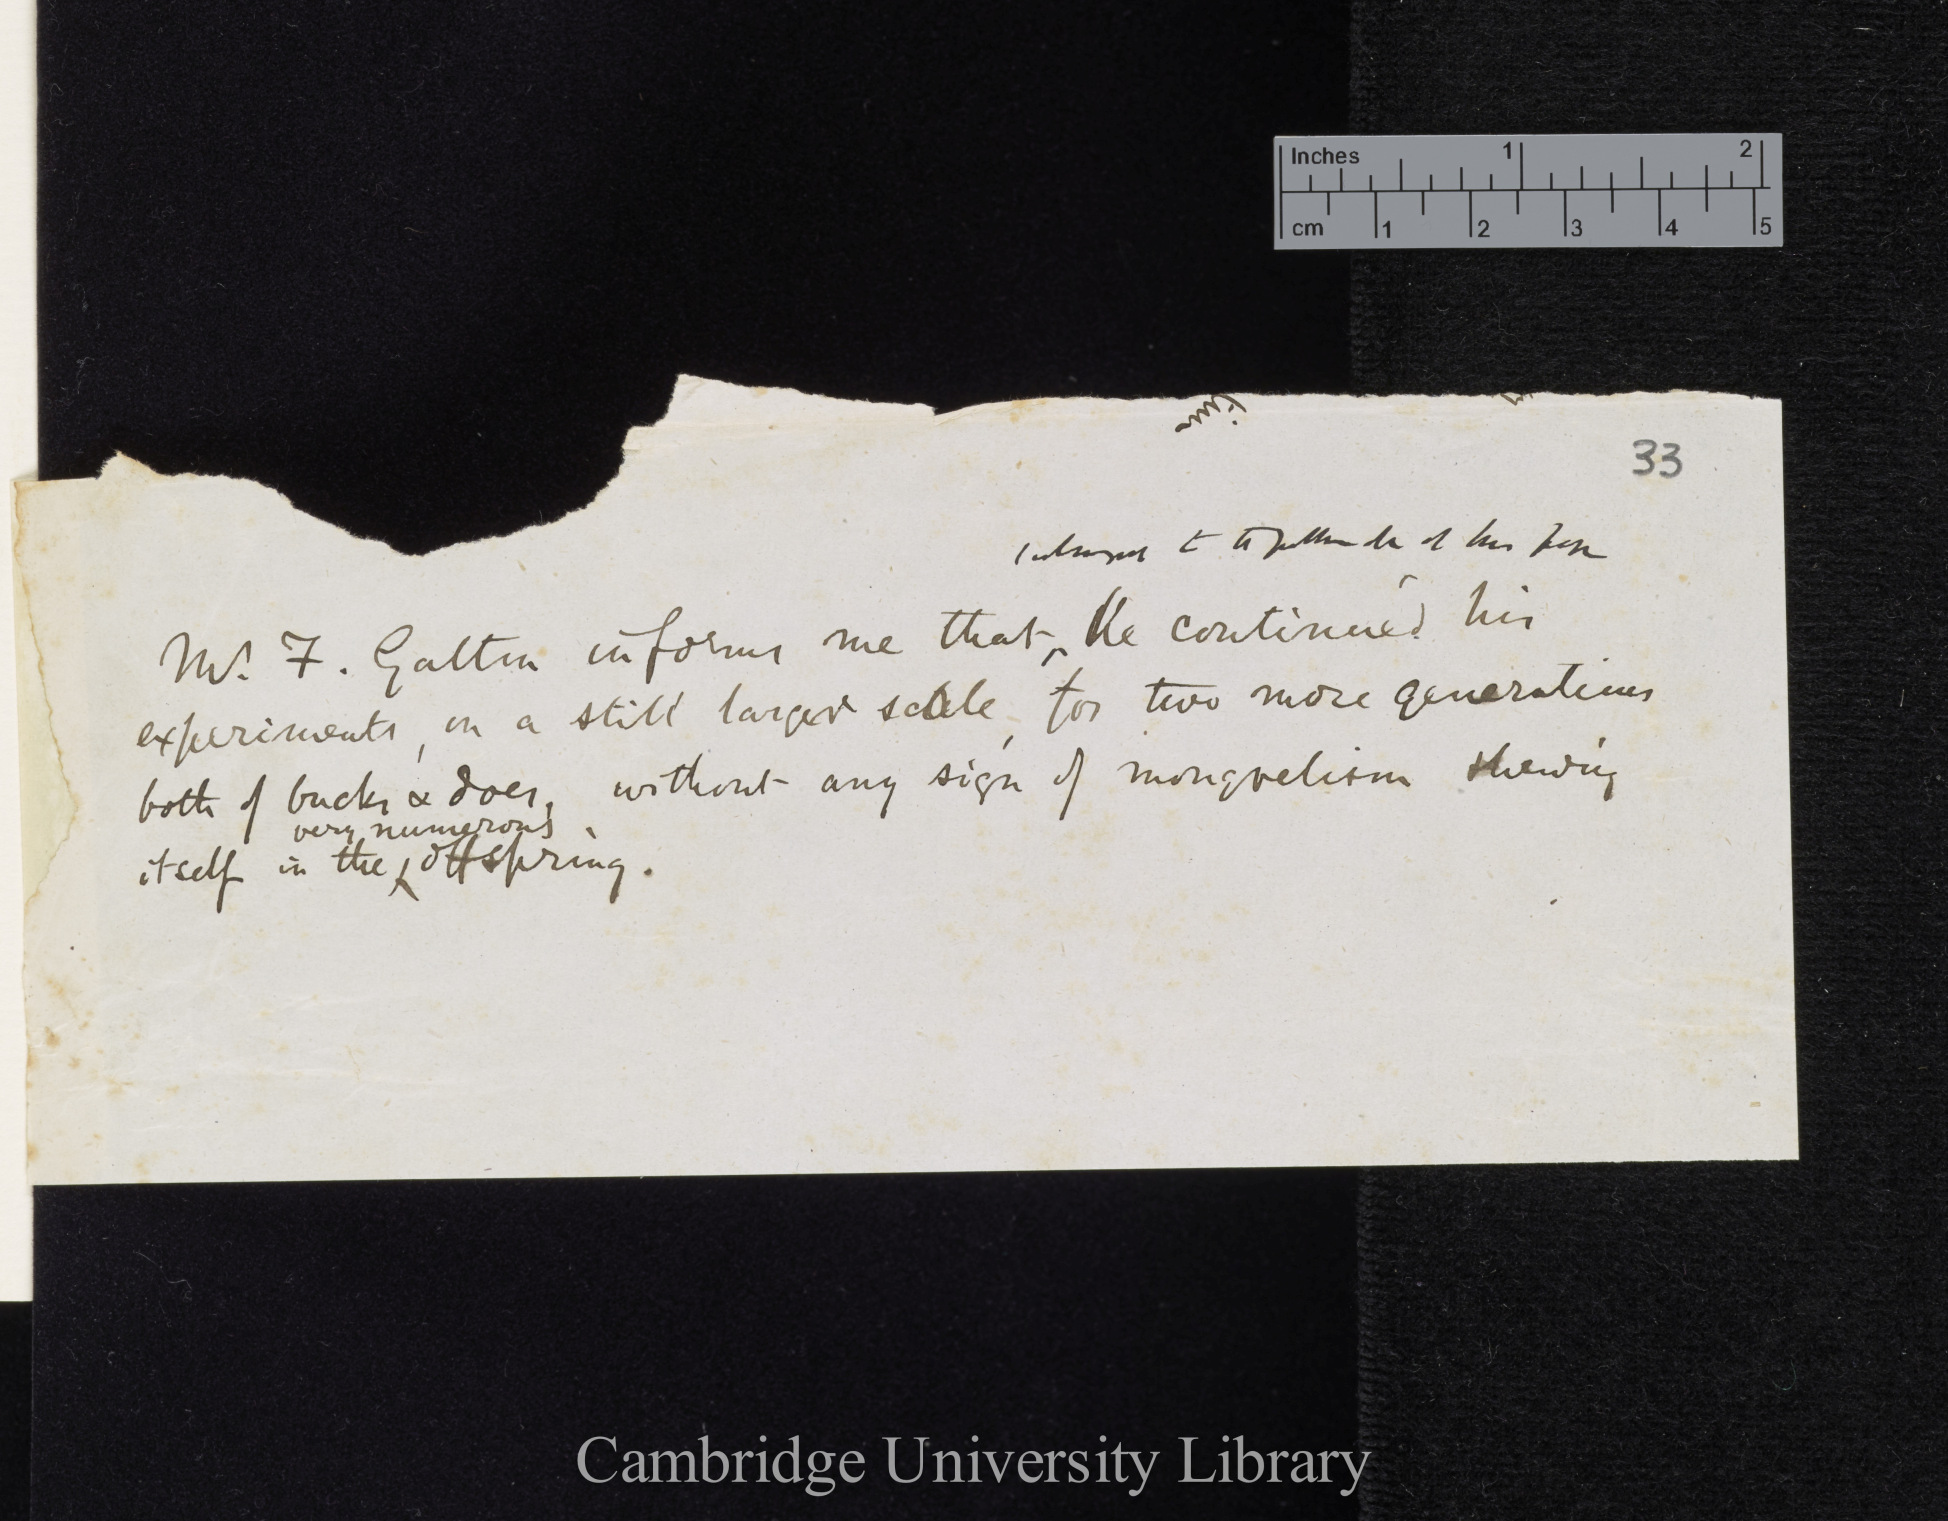 Inches 1 2
cm 1 2 3 4 5
33
subsequent to the publication of his paper
Mr. F. Galton informs me that he continued his
experiments, on a still larger scale, for two more generations
both of bucks & does, without any sign of mongrelism shewing
very numerous
itself in the offspring.
Cambridge University Library